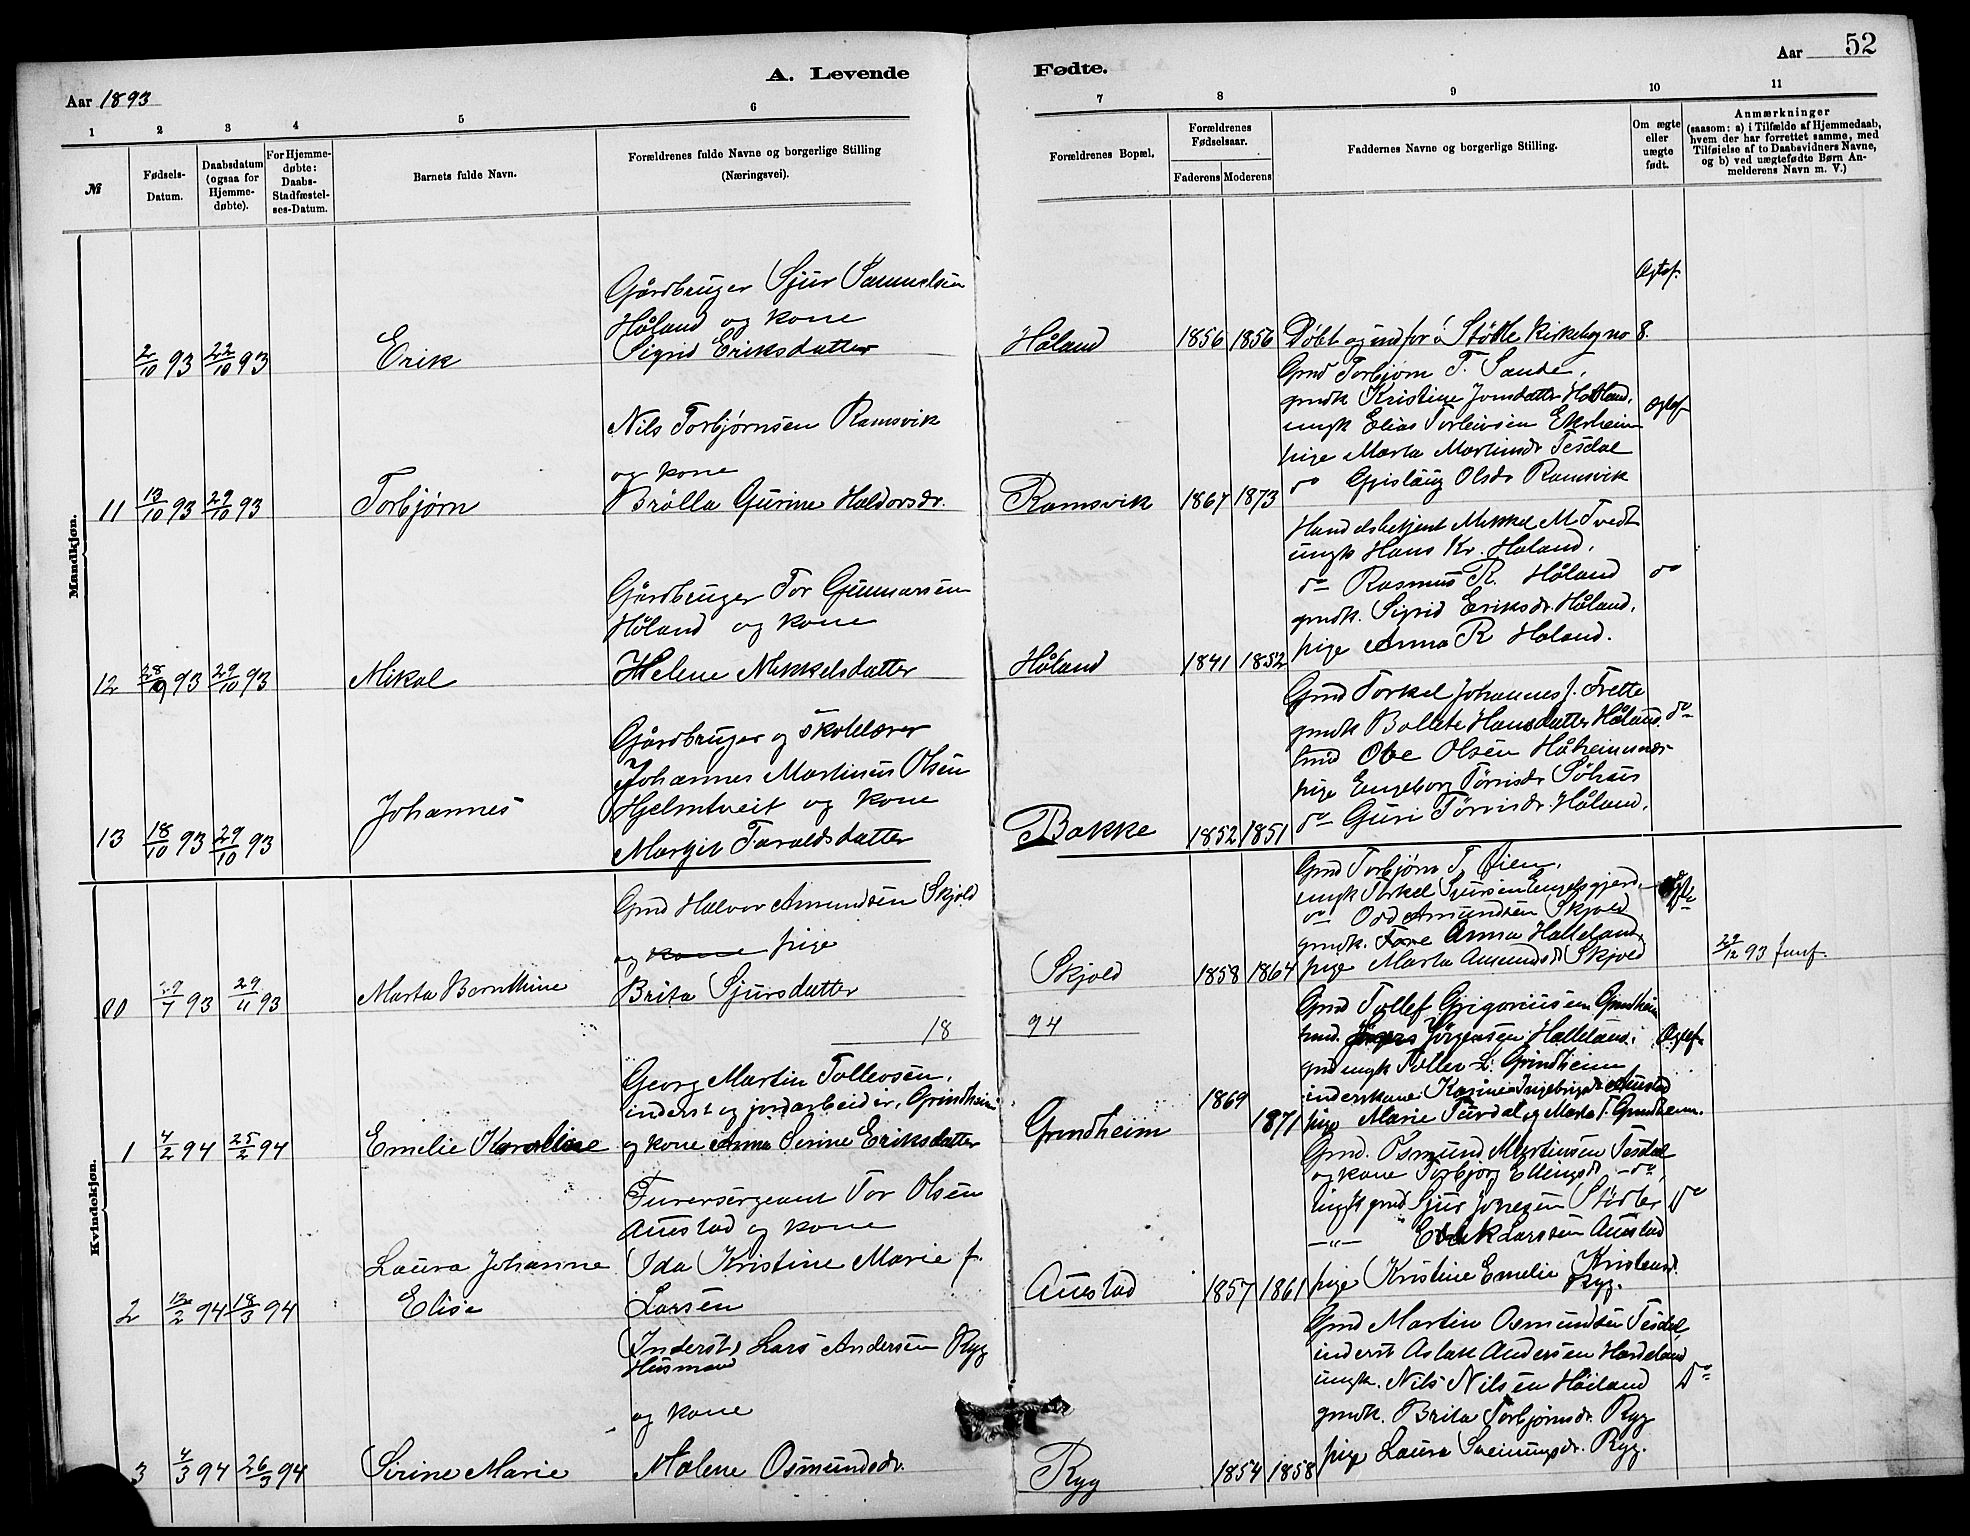 52
A. Levende
Fødte.
Aar 1893
Aar
1 2 3 4 5 6
7 8 9 10 11
№
Fødsels-Datum.
Daabsdatum (ogsaa for Hjemme-døbte).
For Hjemme-døbte: Daabs-Stadfæstel-ses-Datum.
Barnets fulde Navn.
Forældrenes fulde Navne og borgerlige Stilling
(Næringsvei).
Forældrenes Bopæl,
Forældrenes Fødselsaar.
Faderens Moderens
Faddernes Navne og borgerlige Stilling.
Om ægte eller uægte født.
Anmærkninger
(saasom: a) i Tilfælde af Hjemmedaab,
hvem der har forrettet samme, med
Tilføielse af to Daabsvidners Navne,
og b) ved uægtefødte Børn An-
melderens Navn m. V.)
Mandkjøn.
Gårdbruger Sjur Samuelsen
Håland og kone
2/10 93 22/10 93 Erik Sigrid Eriksdatter
Håland 1856 1856 Døbt og indfør i Stødle Kirkebog no 8.
Ægtef.
Nils Torbjørnsen Ramsvik
og kone
11 13/10 93 29/10 93 Torbjørn Brølla Gurine Haldorsdr.
Ramsvik 1867 1873
Gmd Torbjørn T. Sande,
gmdk Kristine Jonsdatter Håland,
ungk Elias Torleivsen Ekrheim
pige Marta Martinsdr Tesdal
do Gislaug Olsdr Ramsvik
Ægtef
Gårdbruger Tor Gunnarsen
Håland og kone
12 28/9 93 29/10 93 Mikal Helene Mikkelsdatter
Håland 1841 1852
Handelsbetjent Mikkel M Tvedt
ungk Hans Kr. Håland.
do Rasmus R. Håland do
gmdk. Sigrid Eriksdr. Håland.
pige Anna R Håland.
Gårdbruger og skolelærer
Johannes Martinus Olsen
Hjelmtveit og kone
13 18/10 93 29/10 93 Johannes Margit Taraldsdatter
Bakke 1852 1851
Gmd Torkel Johannes J. Frette
gmdk Bollete Hansdatter Håland. do
Ove Olsen
pige Engeborg Tørrisdr
do Guri Tørrisdr. Håland.
Kvindekjøn.
Gmd Halvor Amundsen Skjold
og kone pige
00 29/7 93 29/11 93 Marta Bernthine Brita Sjursdatter
Skjold 1858 1864
Gmd Torbjørn T. Øien,
ungk Torkel Sjursen Engelsgjerd
do Odd Amundsen Skjold
gmdk. Anna Halleland
pige Marta Amundsd Skjold
29/12 93
1894
Georg Martin Tollevsen,
inderst og jordarbeider, Grindheim
1 4/2 94 25/2 94 Emelie Karoline og kone Anna Serine Eriksdatter
Grindheim 1869 1871
Gmd Tollef Grigoriusen Grindheim
Jörgensen Halleland. Ægtef
ungk Tollev L. Grindheim
pige Marie Tesdal og Marta T. Grindheim.
Furersergeant Tor Olsen
Austad og kone
Laura Johanne Ida Kristine Marie f.
2 12/2 94 18/3 94 Elise Larsen
Austad 1857 1861
Gmd. Osmund Martinsen Tesdal
og kone Torbjørg Ellingsd -do-
ungk gmd Sjur Jonesen Stødle do
-"- Erik Larssen Austad
pige Kristine Emelie Kristensd.
Ryg.
Inderst, Lars Andersen Ryg
Husmand
og kone
3 4/3 94 26/3 94 Sirine Marie Malene Osmundsdr.
Ryg 1854 1858
Gmd Martin Osmundsen Tesdal
inderst Aslak Andersen
ungk. Nils Nilsen Håiland do
gmdk. Brita Torbjørnsdr. Ryg
pige Laura Sveinungsdr. Ryg.